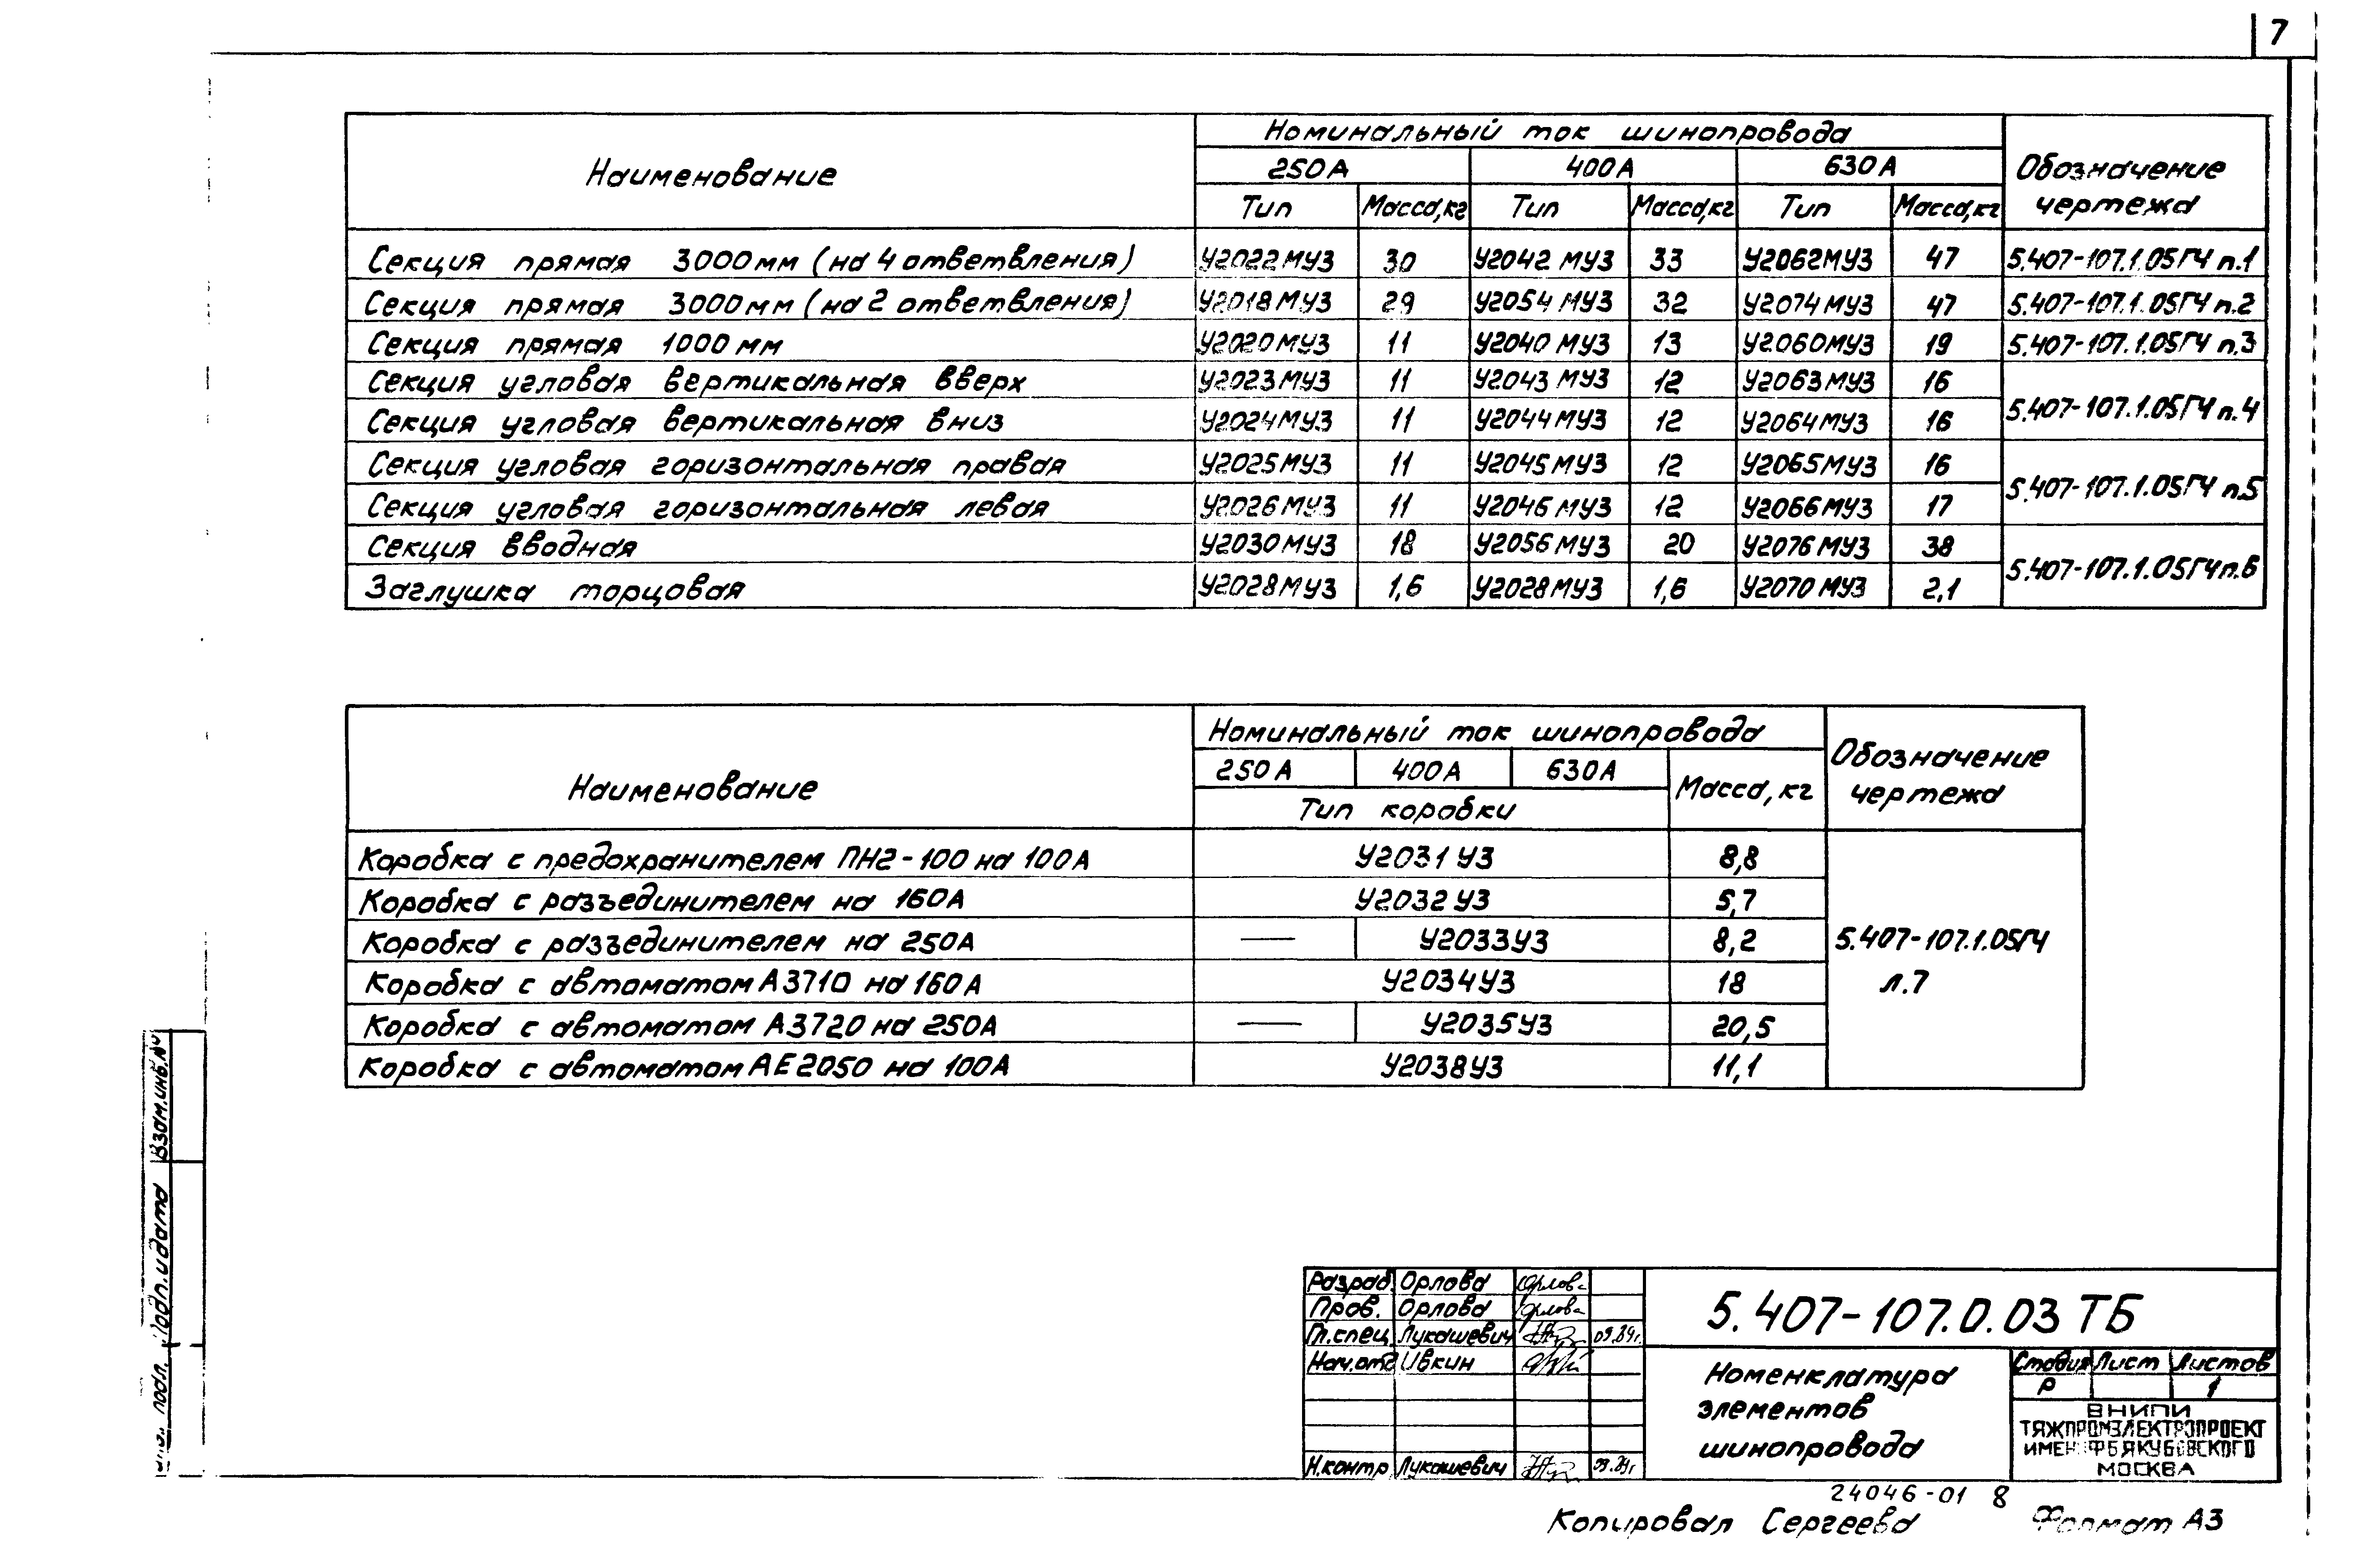 7
Наименование
Номинальный ток шинопровода
250А 400А 630А
Обозначение чертежа
Тип Масса,кг Тип Масса,кг Тип Масса,кг
Секция прямая 3000мм (на 4 ответвления) У2022МУЗ 30 У2042 МУЗ 33 У2062МУЗ 47 5.407-107.1.05ГЧ л.1
Секция прямая 3000мм (на 2 ответвления) У2018МУЗ 29 У2054 МУЗ 32 У2074МУЗ 47 5.407-107.1.05ГЧ л.2
Секция прямая 1000мм У2020МУЗ 11 У2040 МУЗ 13 У2060МУЗ 19 5.407-107.1.05ГЧ л.3
Секция угловая вертикальная вверх У2023МУЗ 11 У2043 МУЗ 12 У2063МУЗ 16
5.407-107.1.05ГЧ л.4
Секция угловая вертикальная вниз У2024МУЗ 11 У2044МУЗ 12 У2064МУЗ 16
Секция угловая горизонтальная правая У2025МУЗ 11 У2045МУЗ 12 У2065МУЗ 16
5.407-107.1.05ГЧ л.5
Секция угловая горизонтальная левая У2026МУЗ 11 У2046МУЗ 12 У2066МУЗ 17
Секция вводная У2030МУЗ 18 У2056МУЗ 20 У2076МУЗ 38
5.407-107.1.05ГЧ л.6
Заглушка торцовая У2028МУЗ 1,6 У2028МУЗ 1,6 У2070МУЗ 2,1
Наименование
Номинальный ток шинопровода
250А 400А 630А
Масса, кг
Обозначение чертежа
Тип коробки
Коробка с предохранителем ПН2-100 на 100А У2031УЗ 8,8
Коробка с разъединителем на 160А У2032УЗ 5,7
Коробка с разъединителем на 250А — У2033УЗ 8,2 5.407-107.1.05ГЧ
Коробка с автоматом А3710 на 160А У2034УЗ 18 л.7
Коробка с автоматом А3720 на 250А — У2035УЗ 20,5
Коробка с автоматом АЕ2050 на 100А У2038УЗ 11,1
Взам.инв.№
Подп.и дата
подл.
Разраб. Орлова Орлова
Пров. Орлова Орлова
Гл.спец. Лукашевич 09.89г.
Нач.отд Ивкин
Н.контр Лукашевич 09.89г
5.407-107.0.03 ТБ
Номенклатура
элементов
шинопровода
Стадия Лист Листов
Р 1
ВНИПИ
ТЯЖПРОМЭЛЕКТРОПРОЕКТ
ИМЕНИ Ф.Б.ЯКУБОВСКОГО
МОСКВА
24046-01 8
Копировал Сергеева Формат А3